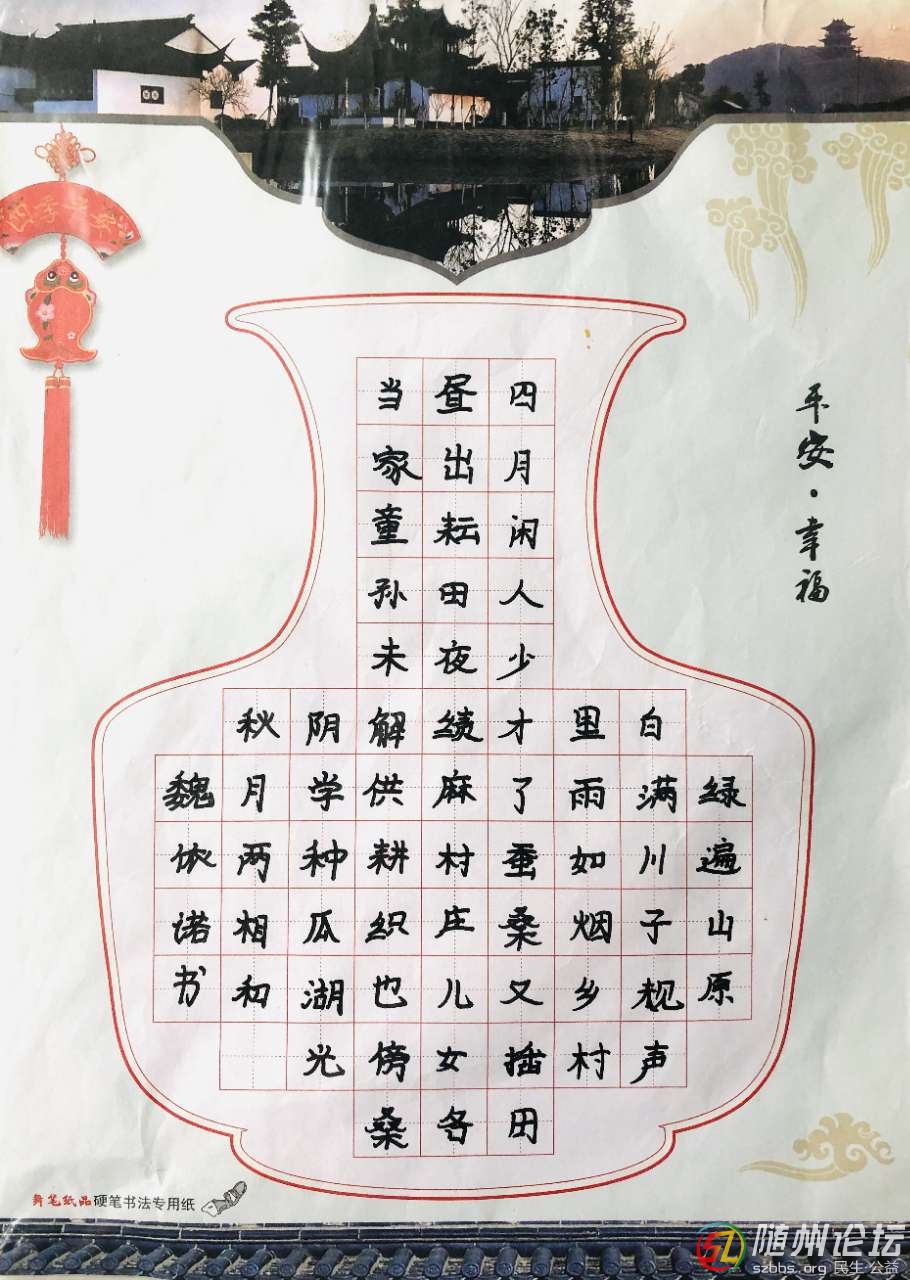 平安·幸福
绿遍山原
白满川子规声
里雨如烟乡村
四月闲人少才了蚕桑又插田
昼出耘田夜绩麻村庄儿女各
当家童孙未解供耕织也傍桑
阴学种瓜湖光
秋月两相和
魏依诺书
笔纸品硬笔书法专用纸
随州论坛
szbbs.org 民生·公益